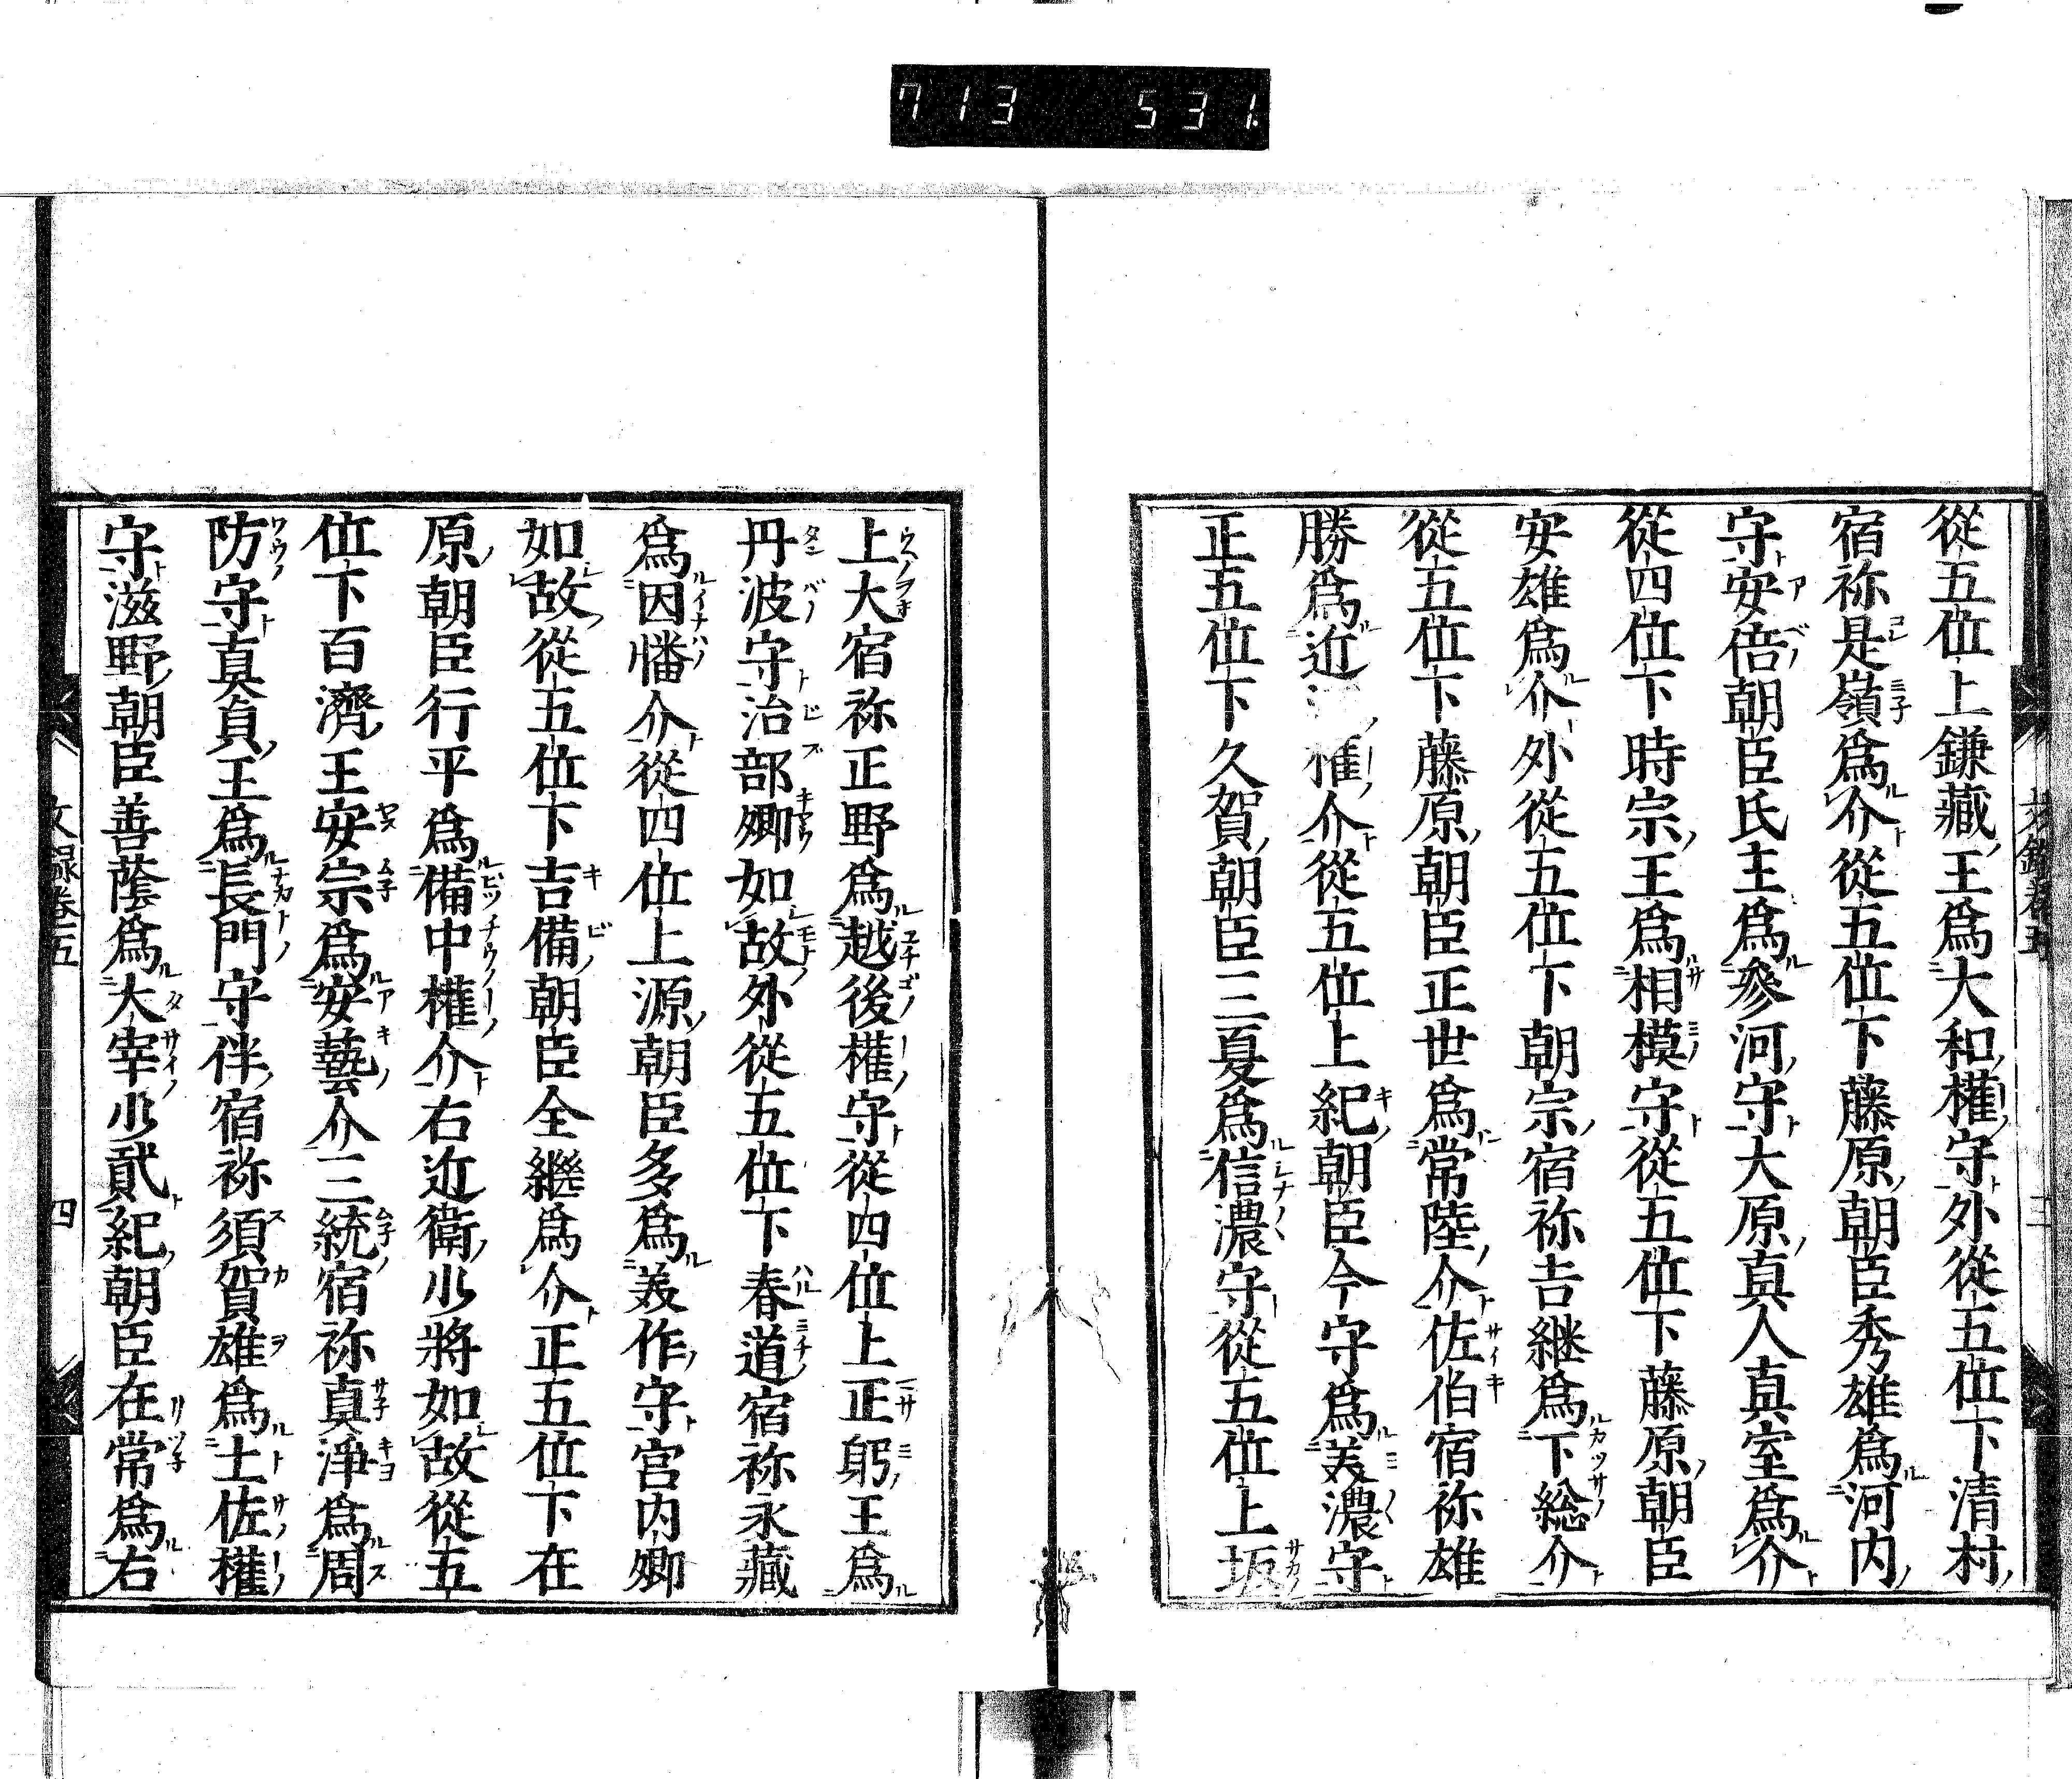 713 531
從五位上鎌藏王爲大和權守外從五位下清村
宿祢是嶺爲介從五位下藤原朝臣秀雄爲河内
守安倍朝臣氏主爲參河守大原真人真室爲介
從四位下時宗王爲相模守從五位下藤原朝臣
安雄爲介外從五位下朝宗宿祢吉継爲下総介
從五位下藤原朝臣正世爲常陸介佐伯宿祢雄
勝爲近權介從五位上紀朝臣今守爲美濃守
正五位下久賀朝臣三夏爲信濃守從五位上坂
上大宿祢正野爲越後權守從四位上正躬王爲
丹波守治部卿如故外從五位下春道宿祢永藏
爲因幡介從四位上源朝臣多爲美作守宮内卿
如故從五位下吉備朝臣全継爲介正五位下在
原朝臣行平爲備中權介右近衛少將如故從五
位下百濟王安宗爲安藝介三統宿祢真淨爲周
防守真貞王爲長門守伴宿祢須賀雄爲土佐權
守滋野朝臣善蔭爲大宰少貳紀朝臣在常爲右
文録卷五
四